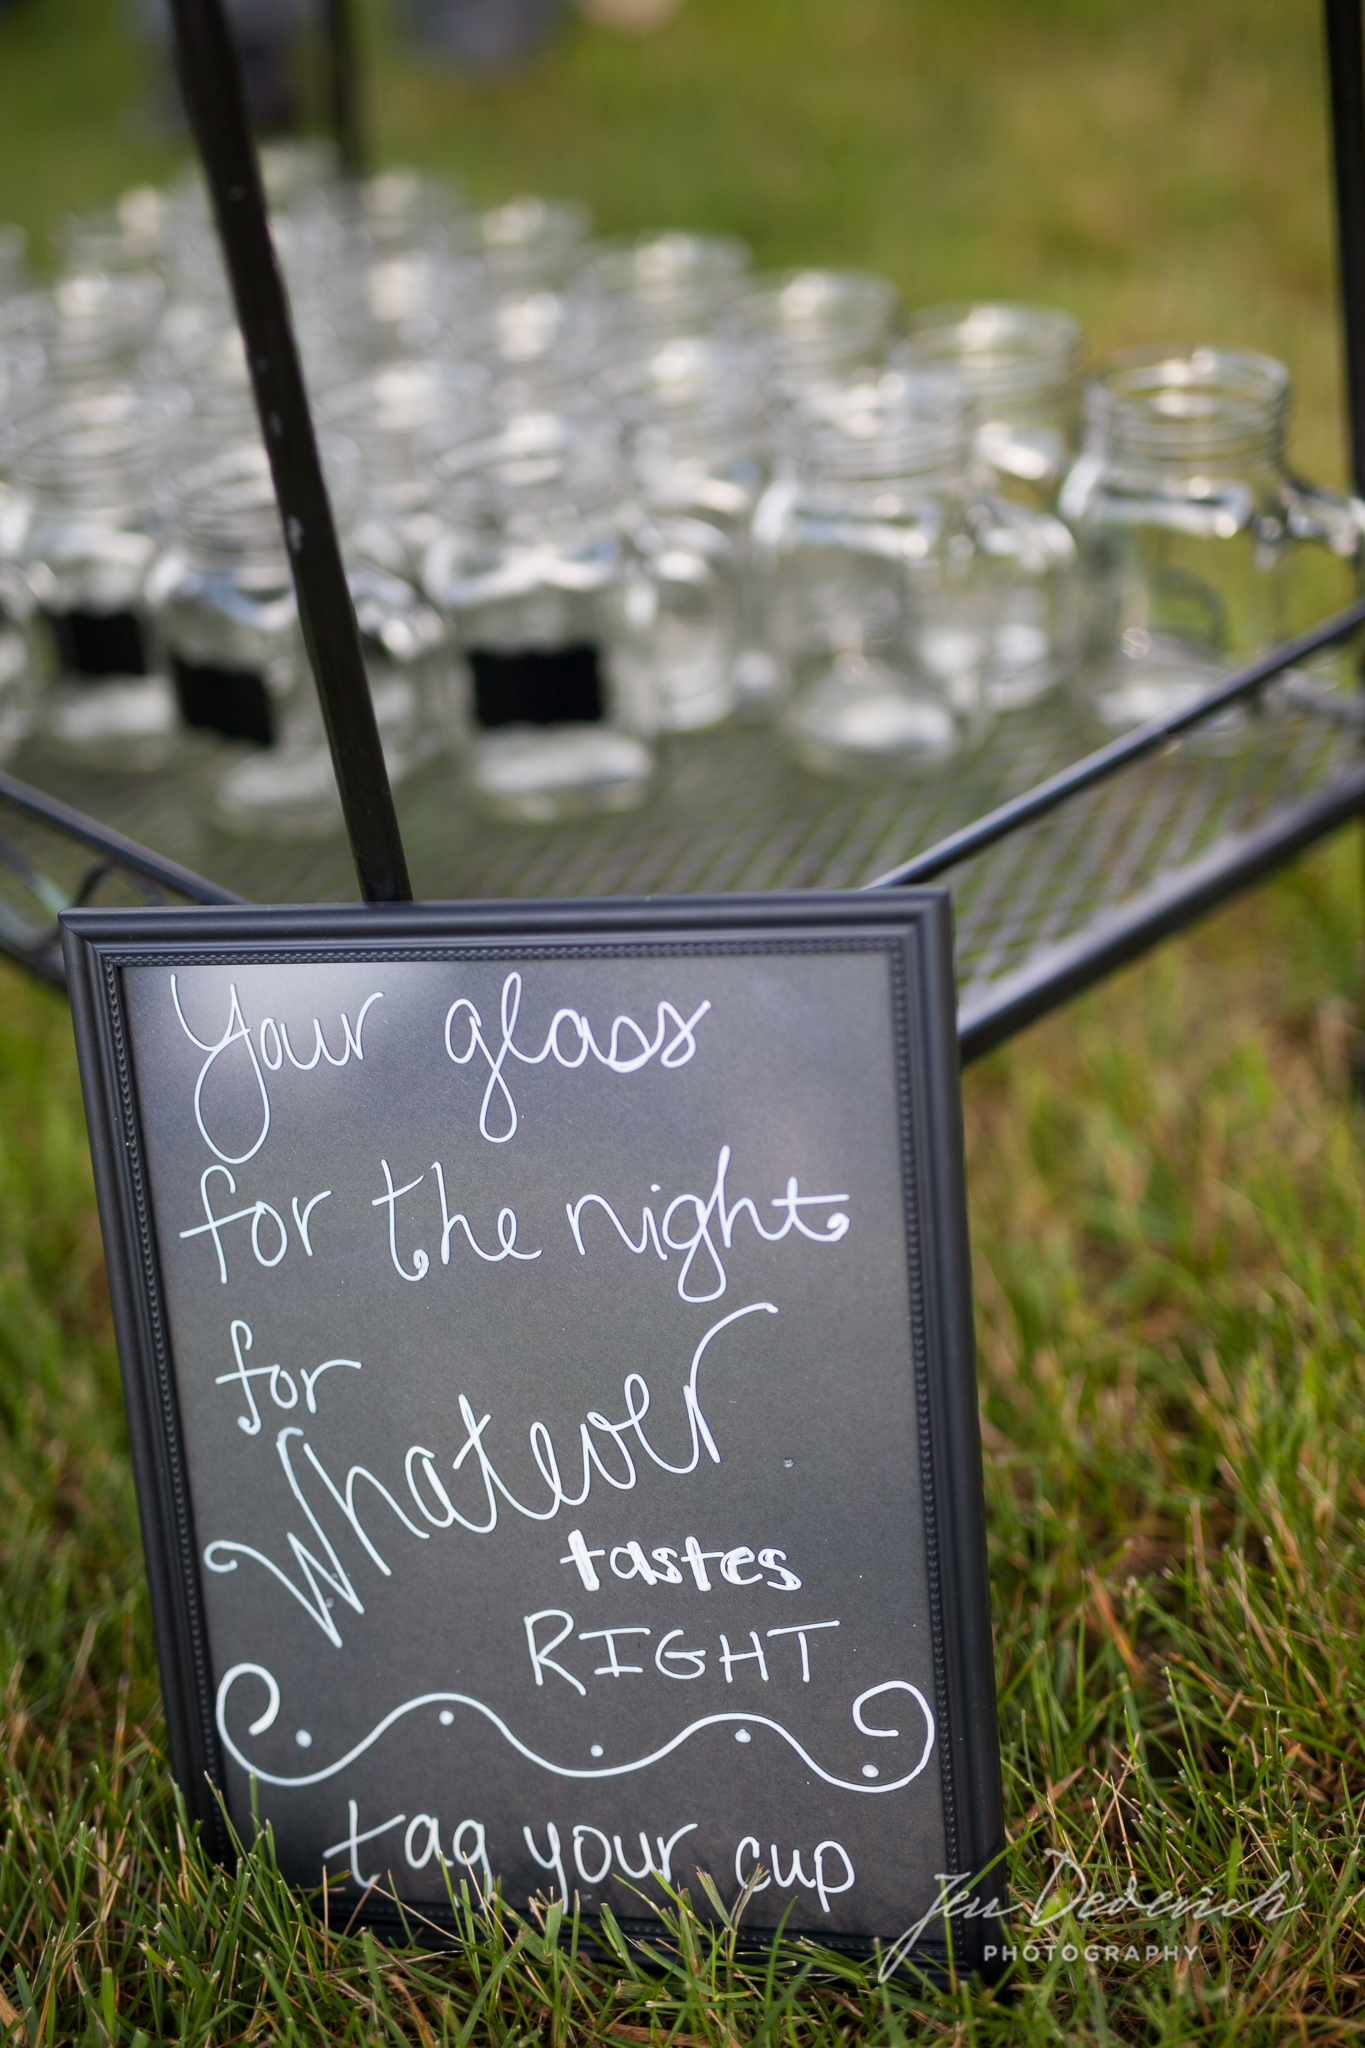 Your glass
for the night
for
Whatever
tastes
RIGHT
tag your cup
Jen Dederich
PHOTOGRAPHY